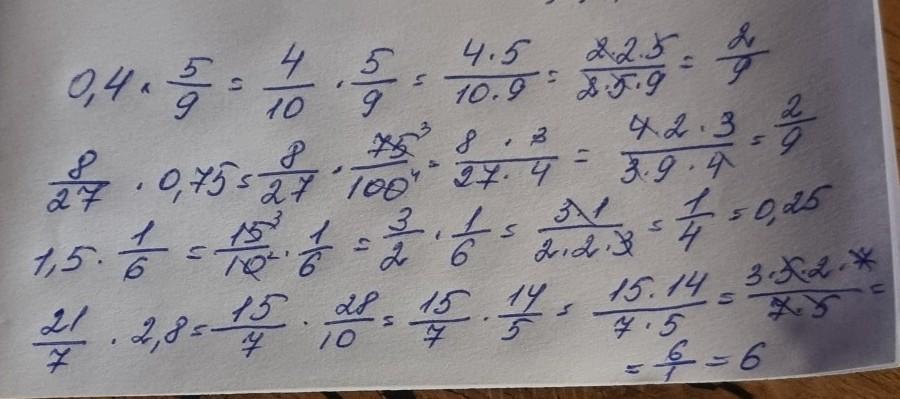 0,4 · 5/9 = 4/10 · 5/9 = 4·5/10·9 = 2·2·5/2·5·9 = 2/9
8/27 · 0,75 = 8/27 · 75³/100⁴ = 8·3/27·4 = 4·2·3/3·9·4 = 2/9
1,5 · 1/6 = 15³/10² · 1/6 = 3/2 · 1/6 = 3·1/2·2·3 = 1/4 = 0,25
21/7 · 2,8 = 15/7 · 28/10 = 15/7 · 14/5 = 15·14/7·5 = 3·5·2·7/7·5 =
= 6/1 = 6